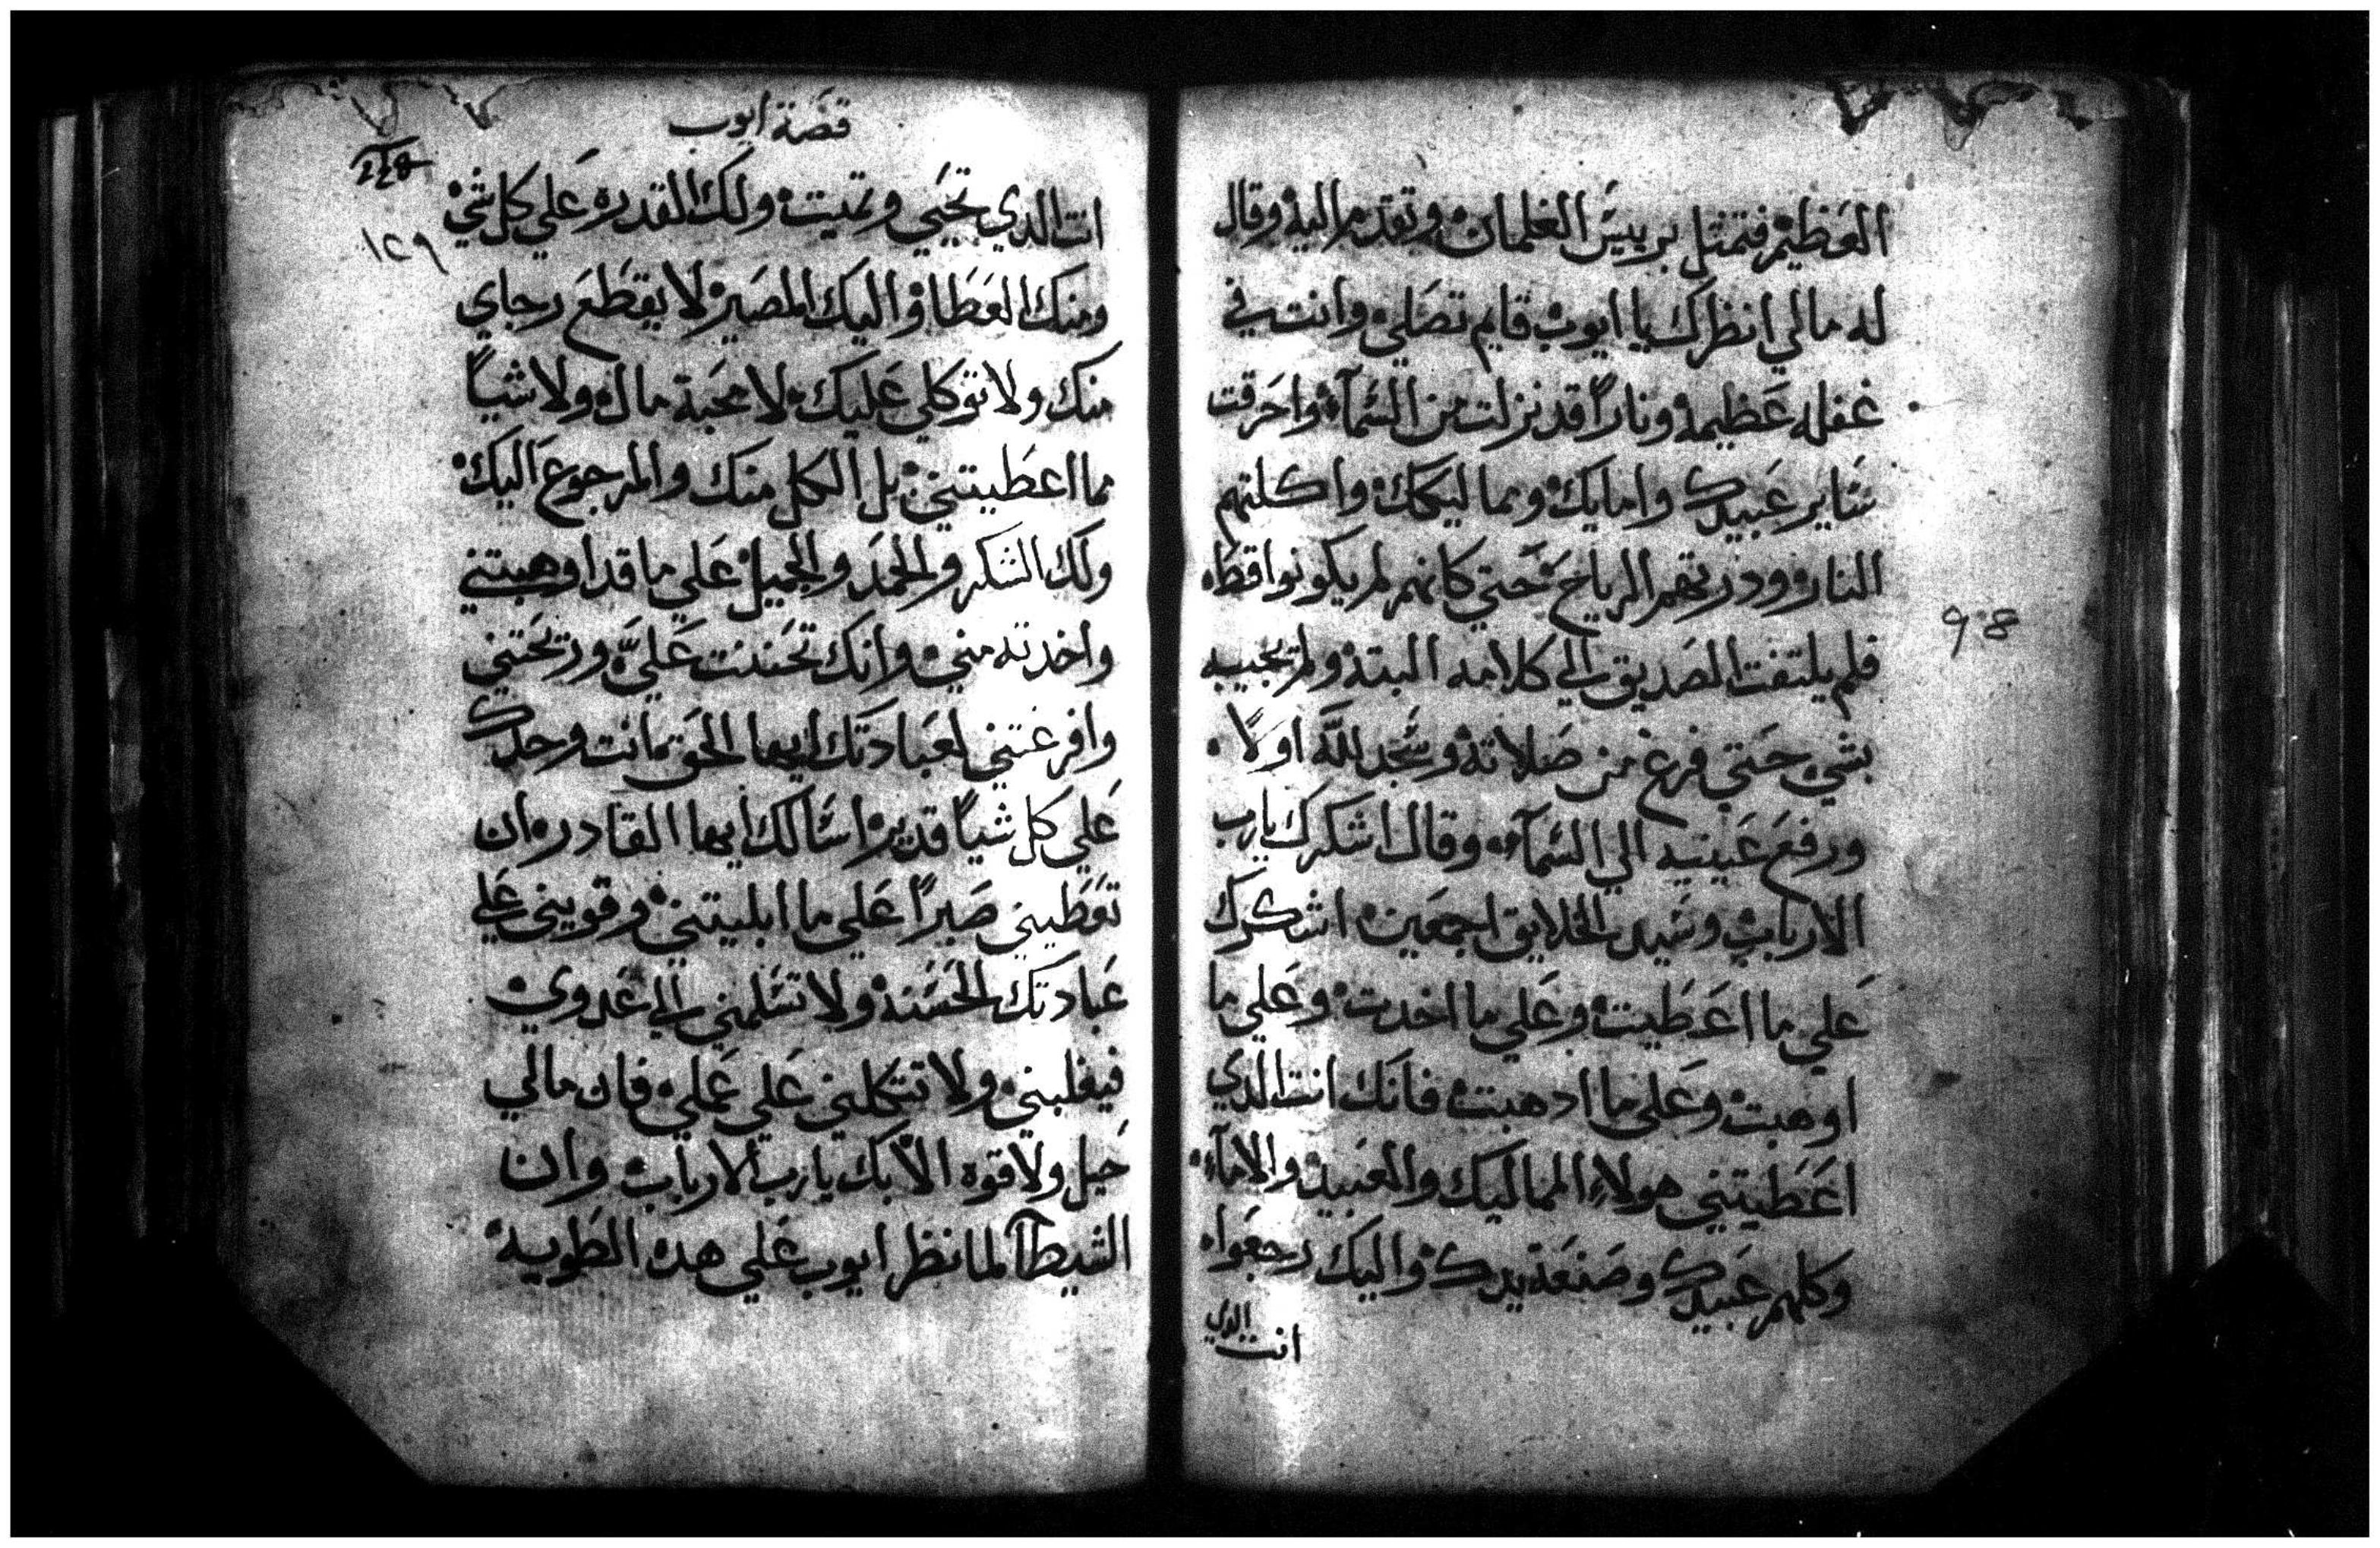 العظيم فتمثل برييس الغلمان وتقدم اليه وقال
له مالي انظرك يا ايوب قايم تصلي وانت في
غفله عظيمه ونارًا قد نزلت من السمآء واحرقت
ساير عبيدك وامايك ومماليكك واكلتهم
النار ودرتهم الرياح حتي كانهم لم يكونوا قط
فلم يلتفت الصديق الي كلامه البته ولم يجيبه
بشي حتي فرغ من صلاته وسجد لله اولًا
ورفع عينيه الي السمآء وقال اشكرك يارب
الارباب وسيد الخلايق اجمعين اشكرك
علي ما اعطيت وعلي ما اخدت وعلي ما
اوهبت وعلي ما ادهبت فانك انت الدي
اعطيتني هولاء المماليك والعبيد والامآء
وكلهم عبيدك وصنعة يدك واليك رجعوا
انت الدي
قصة ايوب
248
١٢٩
انت الدي تحيي وتميت ولك القدره علي كل شي
ومنك العطا واليك المصير لا يقطع رجاي
منك ولا توكلي عليك لا محبة مال ولا شيأً
مما اعطيتني بل الكل منك والمرجوع اليك
ولك الشكر والحمد والجميل علي ما قد اوهبتني
واخدته مني وانك تحننت عليّ وريحتني
وافرغتني لعبادتك ايها الحق مانت وحدك
علي كل شيأً قدير اسالك ايها القادر ان
تعطيني صبرًا علي ما ابليتني وقويني علي
عبادتك الحسنه ولا تسلمني الي عدوي
فيغلبني ولا تتكلني علي عملي فان مالي
حيل ولا قوه الا بك يارب الارباب وان
الشيطان لما نظر ايوب علي هده الطويه